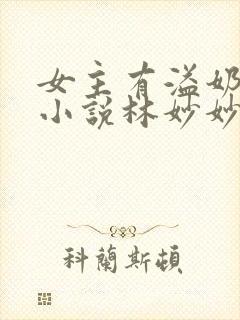 女主有溢奶
小说林妙妙
科蘭斯頓